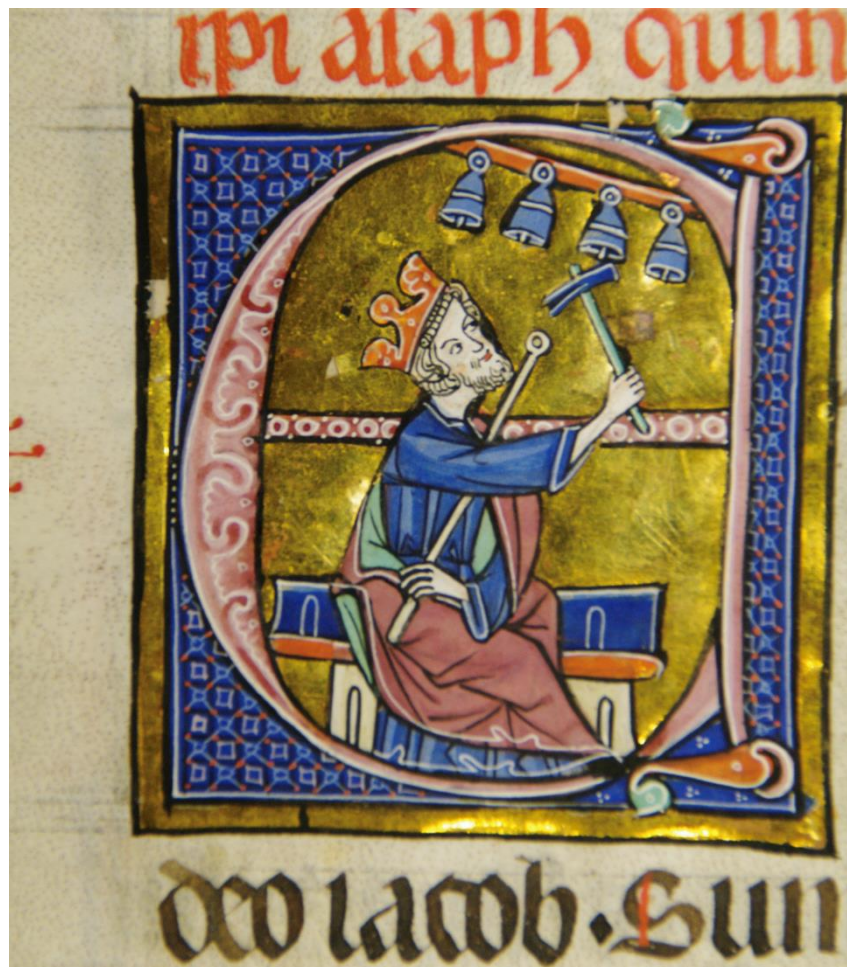 ipi asaph quin
E
deo iacob. Sum